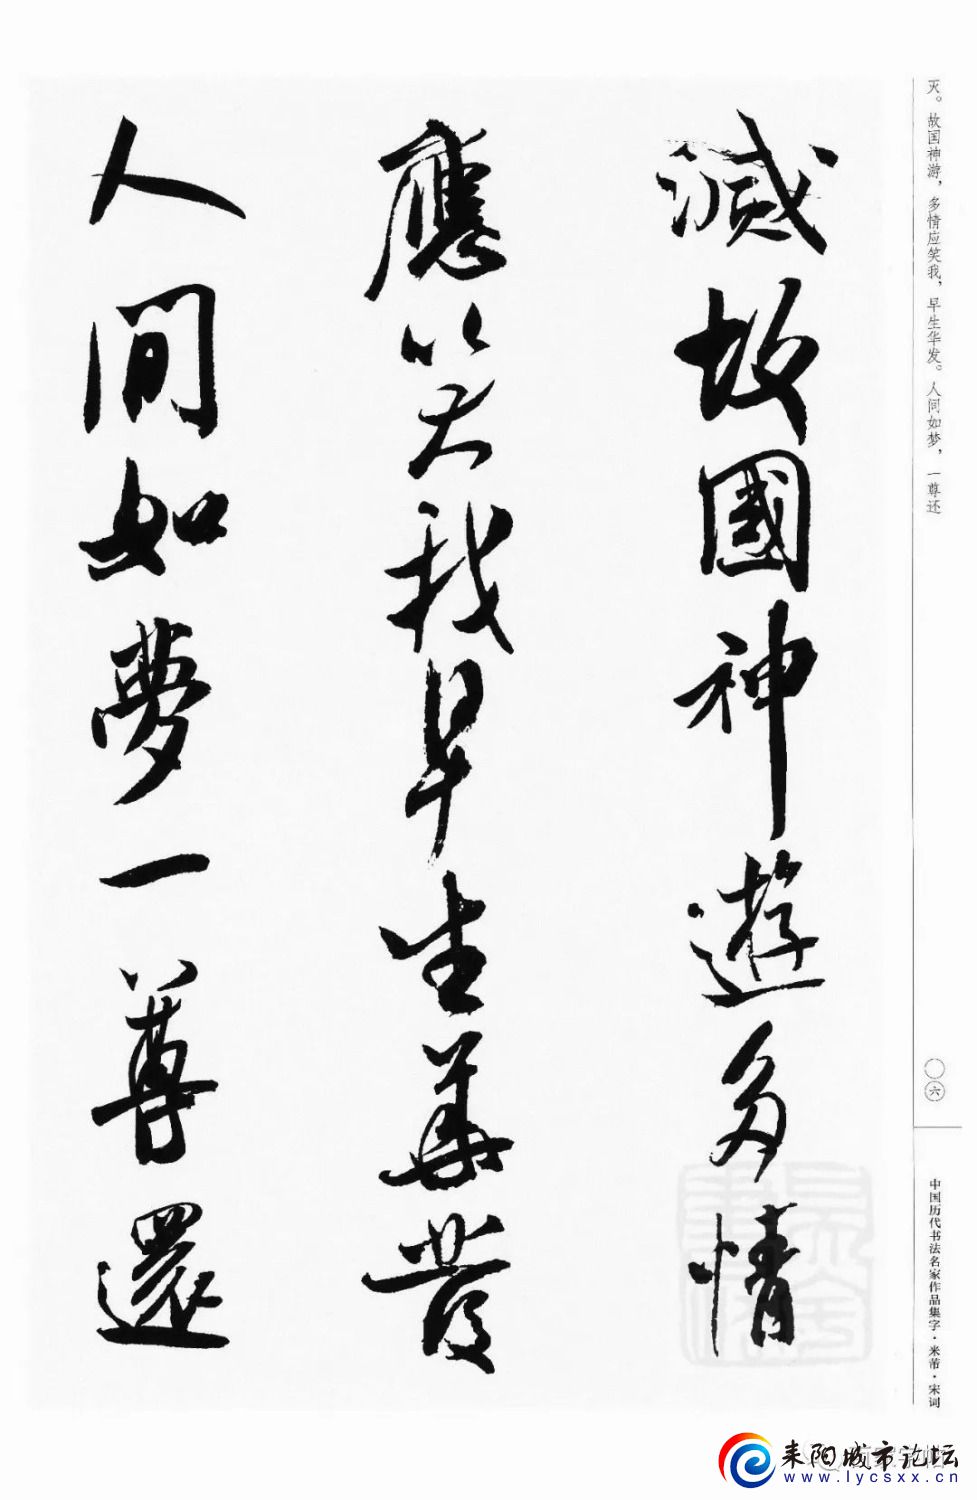 灭。故国神游，多情应笑我，早生华发。人间如梦，一尊还
滅故國神遊多情
應笑我早生華發
人間如夢一尊還
〇六
中国历代书法名家作品集字·米芾·宋词
耒阳城市论坛
www.lycsxx.cn